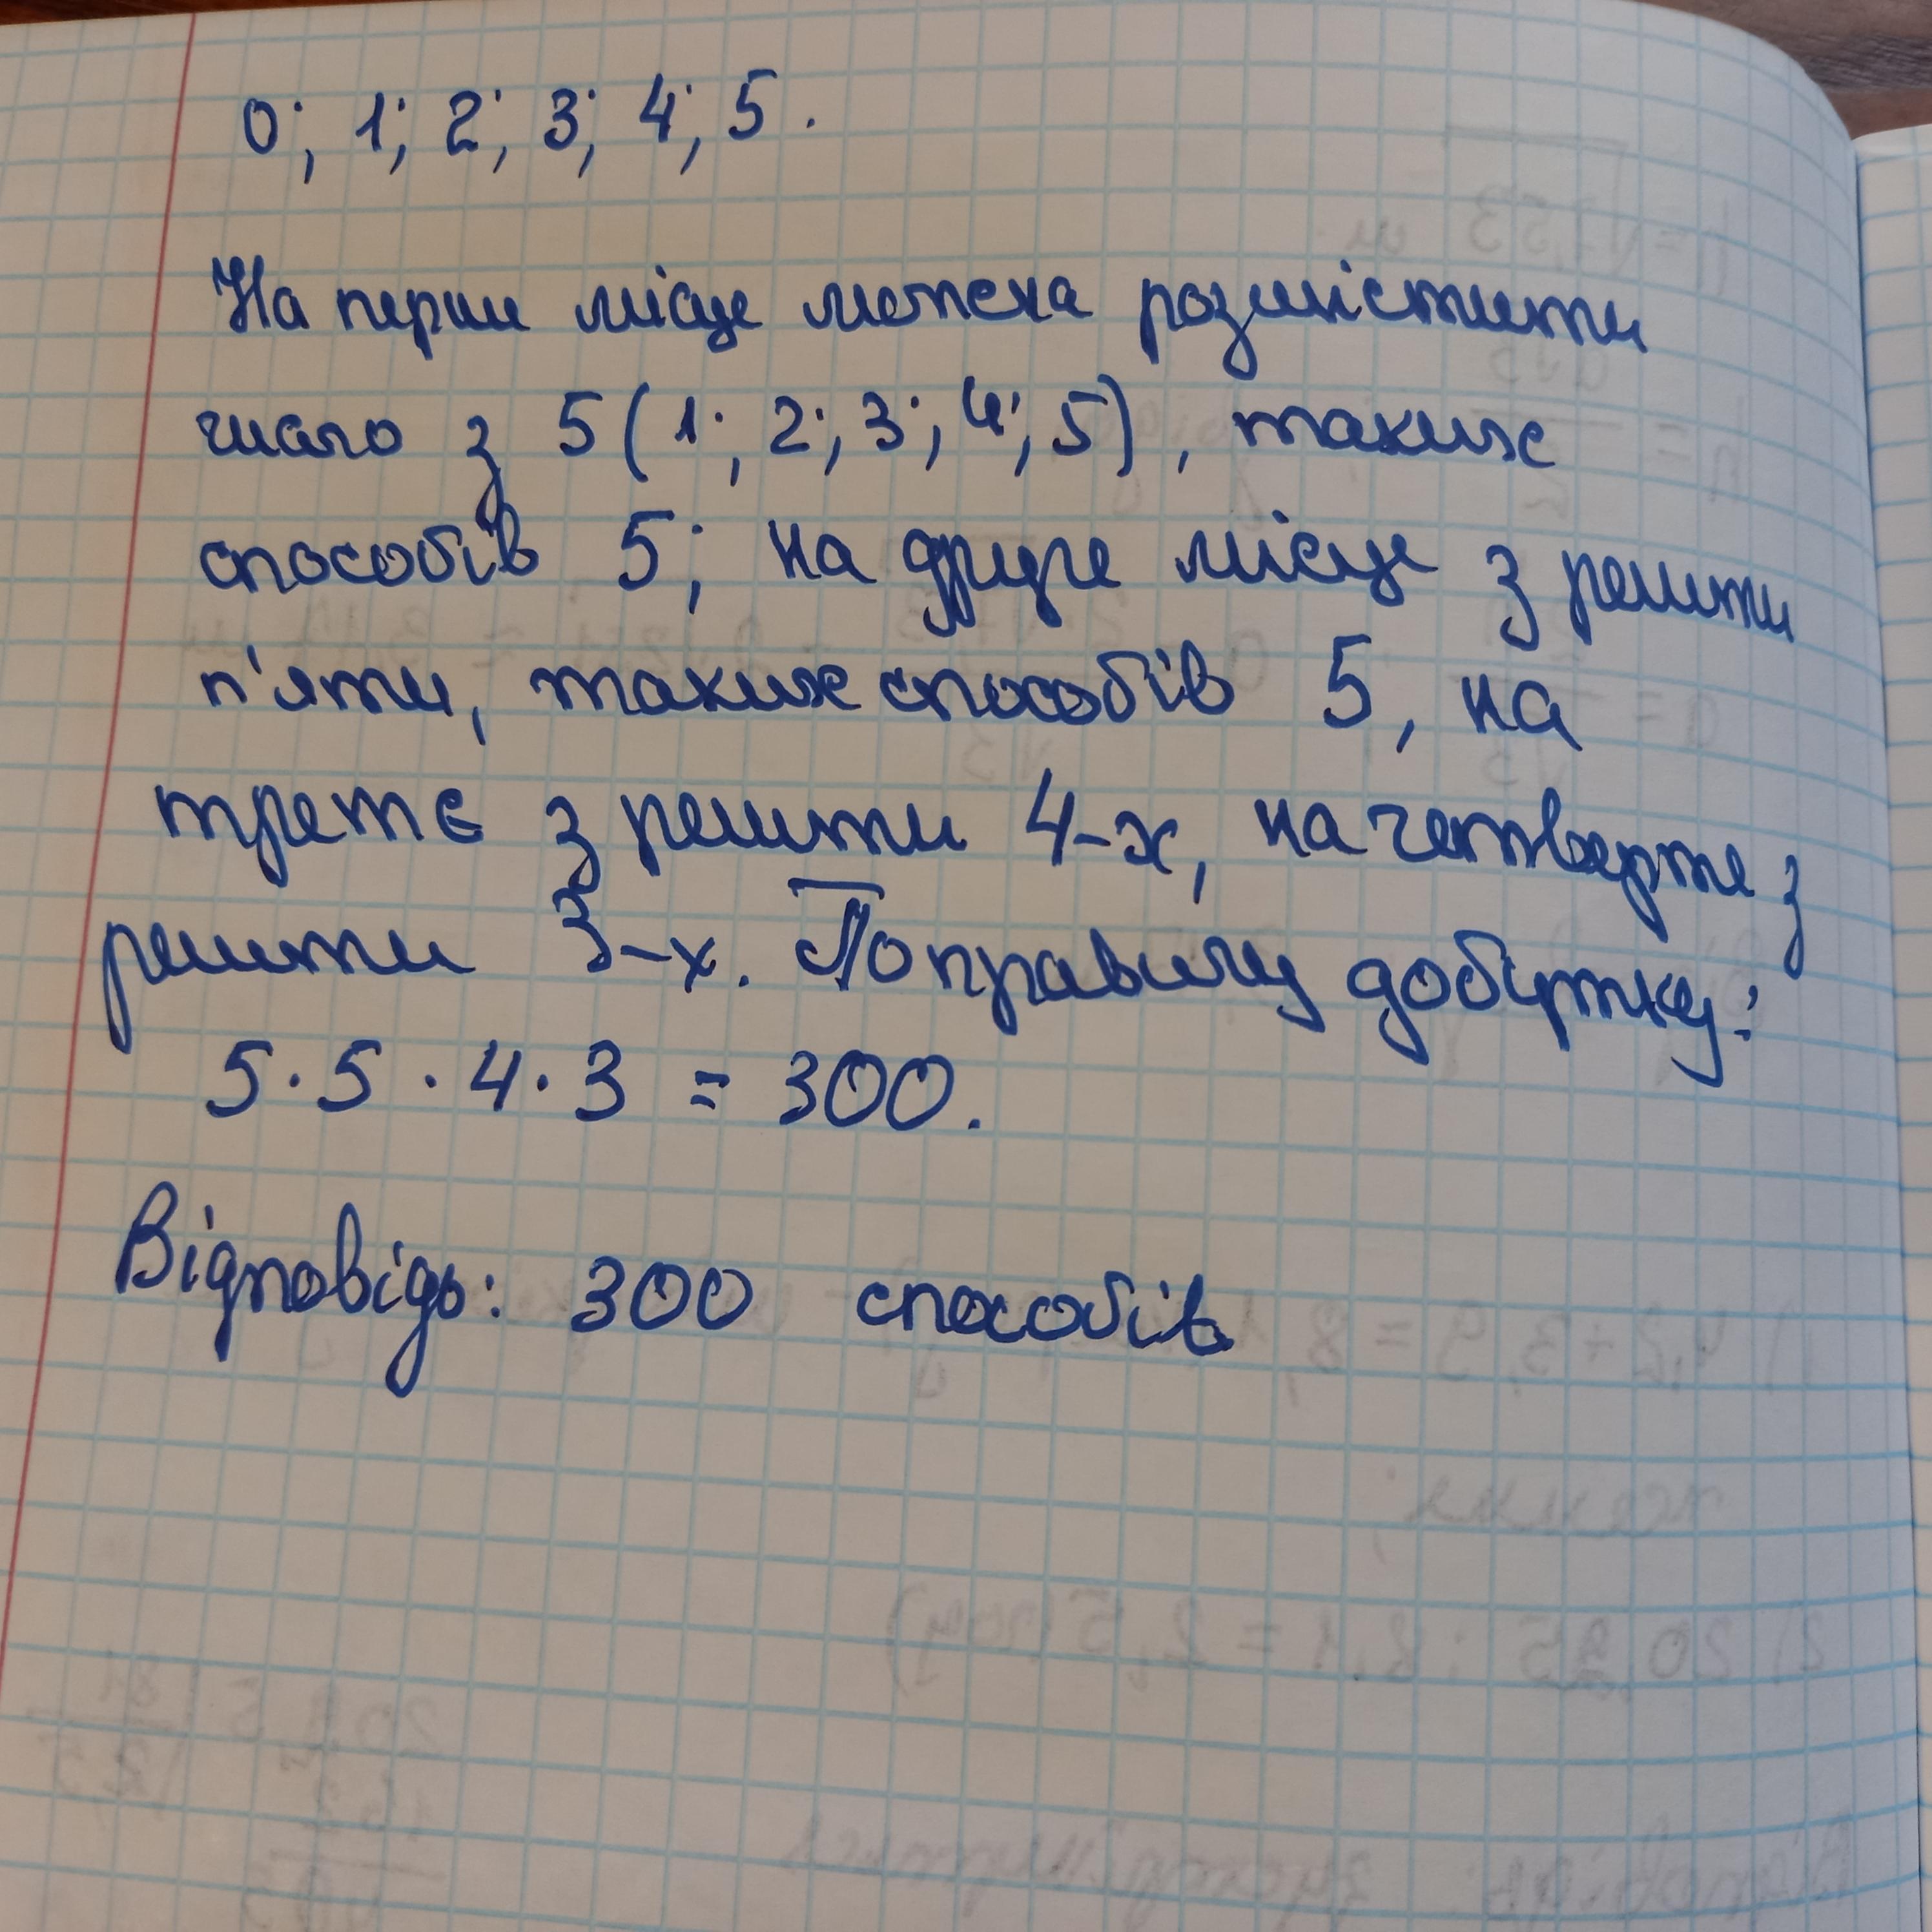 0; 1; 2; 3; 4; 5.
На перше місце можна розмістити
число з 5 (1; 2; 3; 4; 5), таких
способів 5; на друге місце з решти
п'яти, таких способів 5, на
третє з решти 4-х, на четверте з
решти 3-х. По правилу добутку:
5 · 5 · 4 · 3 = 300.
Відповідь: 300 способів